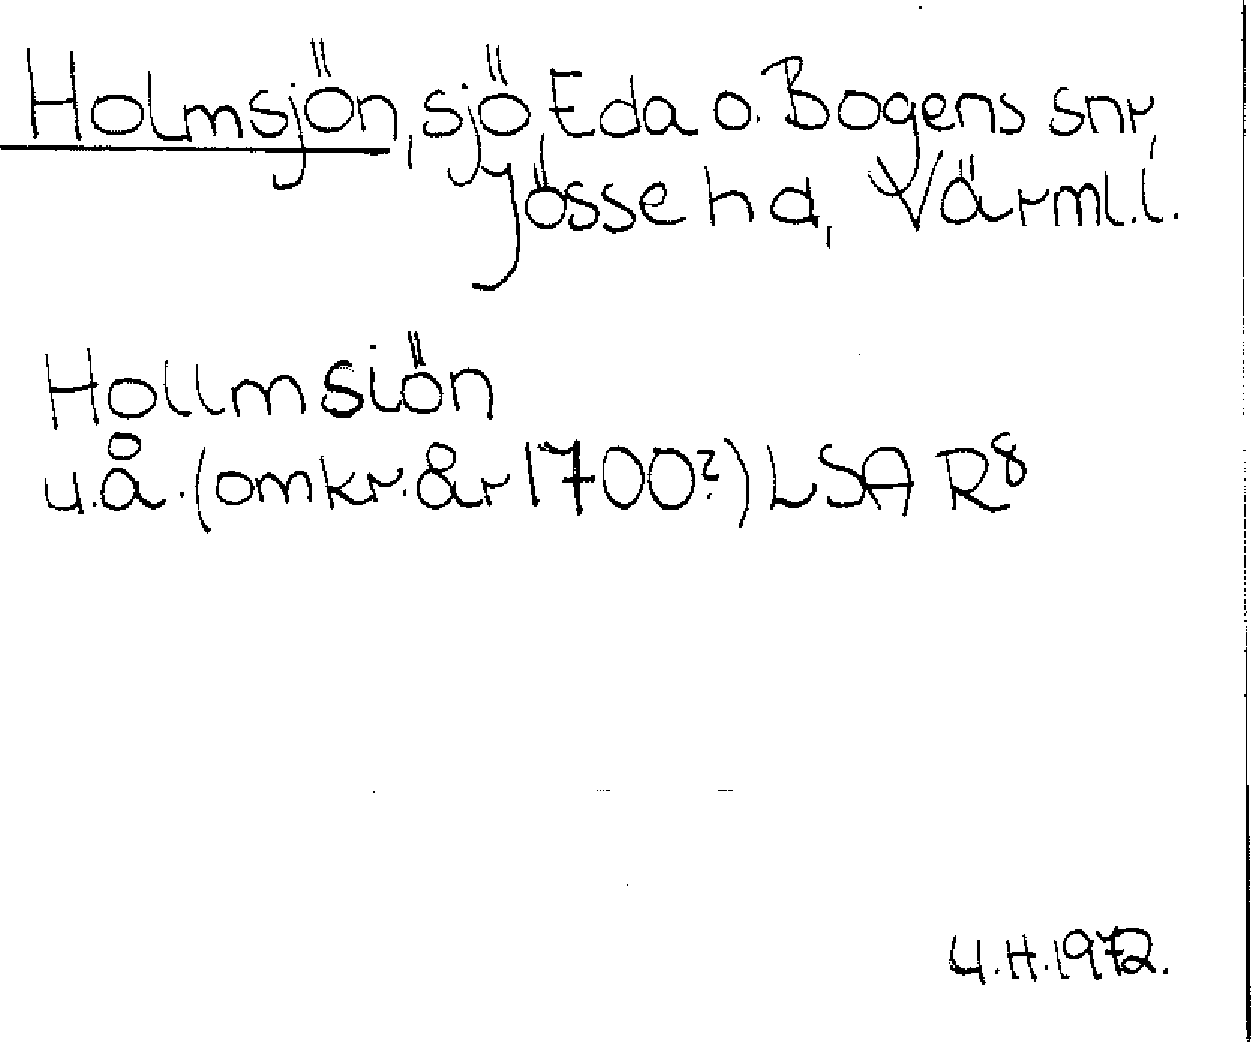 Holmsjön, sjö, Eda o. Bogens snr,
Jösse hd, Värml.l.
Hollmsiön
u.å. (omkr. år 1700?) LSA R8
U.H. 1972.